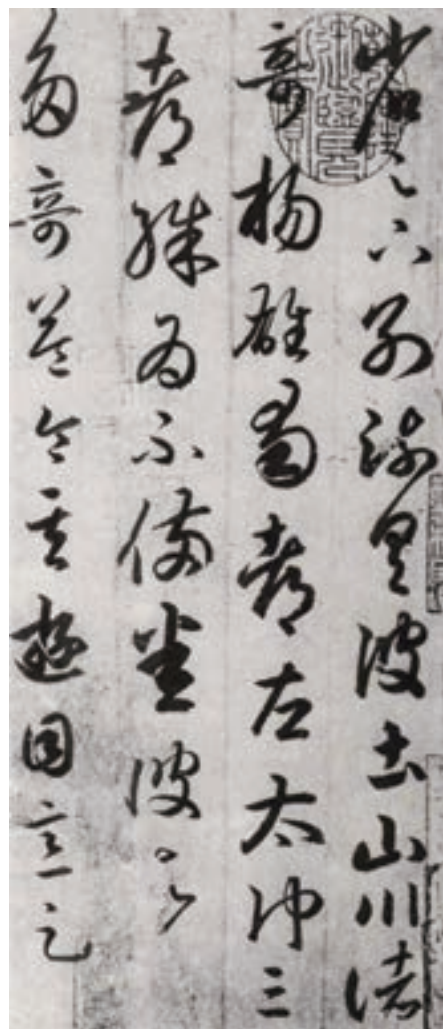 省足下別疏具彼土山川諸
奇楊雄蜀都左太沖三
都殊為不備悉彼
多奇益令其遊目意足